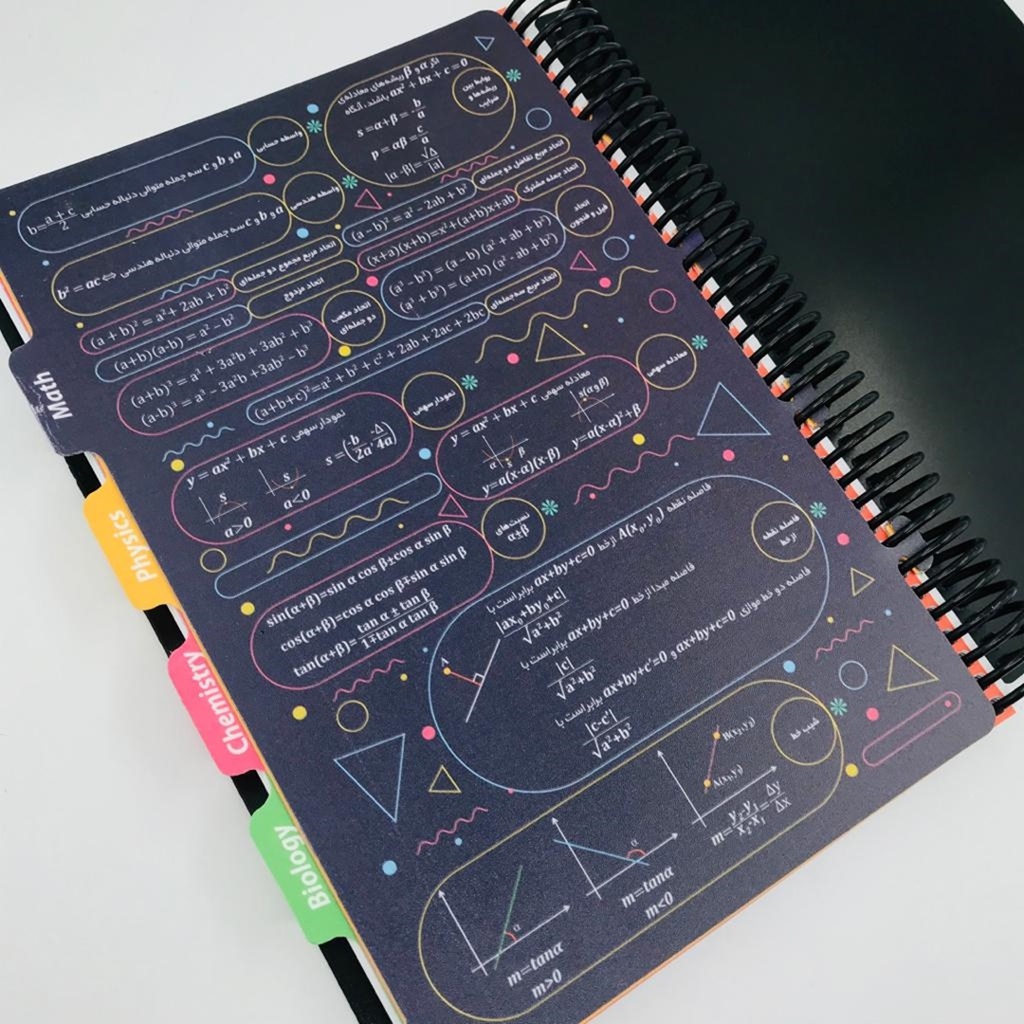 روابط بین
ریشه‌ها و
ضرایب
اگر α و β ریشه‌های معادله‌ی
ax² + bx + c = 0 باشند، آنگاه
s = α+β = -b/a
p = αβ = c/a
|α-β| = √Δ/|a|
واسطه حسابی
a و b و c سه جمله متوالی دنباله حسابی b = (a+c)/2
واسطه هندسی
a و b و c سه جمله متوالی دنباله هندسی ⇔ b² = ac
اتحاد مربع تفاضل دو جمله‌ای
(a - b)² = a² - 2ab + b²
اتحاد جمله مشترک
(x+a)(x+b)=x²+(a+b)x+ab
اتحاد مربع مجموع دو جمله‌ای
(a + b)² = a² + 2ab + b²
اتحاد مزدوج
(a+b)(a-b) = a² - b²
اتحاد
فیل و فنجون
(a³ - b³) = (a - b) (a² + ab + b²)
(a³ + b³) = (a+b) (a² - ab + b²)
اتحاد مکعب
دو جمله‌ای
(a+b)³ = a³ + 3a²b + 3ab² + b³
(a-b)³ = a³ - 3a²b +3ab² - b³
اتحاد مربع سه جمله‌ای
(a+b+c)²=a² + b² + c² + 2ab + 2ac + 2bc
نمودار سهمی
نمودار سهمی y = ax² + bx + c
s = (-b/2a, -Δ/4a)
S
S
a>0
a<0
معادله سهمی
معادله سهمی
y = ax² + bx + c
s(α,β)
α s β
y=a(x-α)(x-β)
y=a(x-α)²+β
نسبت‌های
α±β
sin(α+β)=sin α cos β±cos α sin β
cos(α+β)=cos α cos β∓sin α sin β
tan(α+β)= (tan α ± tan β)/(1∓tan α tan β)
فاصله نقطه
از خط
فاصله نقطه A(x₀,y₀) از خط ax+by+c=0 برابر است با
|ax₀+by₀+c|/√a²+b²
فاصله مبدا از خط ax+by+c=0 برابر است با
|c|/√a²+b²
فاصله دو خط موازی ax+by+c=0 و ax+by+c'=0 برابر است با
|c-c'|/√a²+b²
A
شیب خط
B(x₂,y₂)
A(x₁,y₁)
m= (y₂-y₁)/(x₂-x₁) = Δy/Δx
α
m=tanα
m<0
α
m=tanα
m>0
Math
Physics
Chemistry
Biology